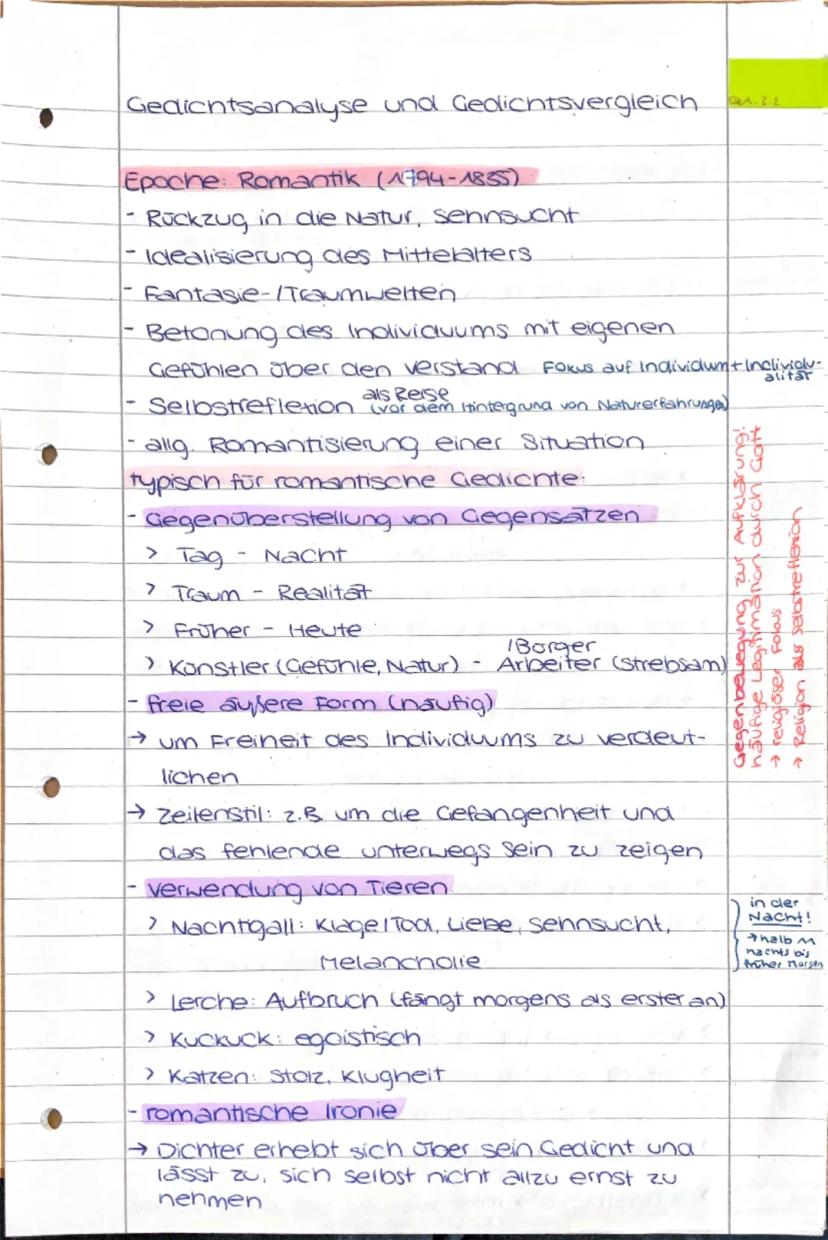 Gedichtsanalyse und Gedichtsvergleich
QA.2.2
Epoche: Romantik (1794-1835)
- Rückzug in die Natur, Sehnsucht
- Idealisierung des Mittelalters
- Fantasie-/Traumwelten
- Betonung des Individuums mit eigenen
Gefühlen über den Verstand Fokus auf Individum + Individu-
alität
- Selbstrefletion als Reise (vor dem Hintergrund von Naturerfahrungen)
- allg. Romantisierung einer Situation
typisch für romantische Gedichte:
- Gegenüberstellung von Gegensätzen
> Tag - Nacht
> Traum - Realität
> Früher - Heute
> Künstler (Gefühle, Natur) - Arbeiter /Bürger (strebsam)
- freie äußere Form (häufig)
→ um Freiheit des Individuums zu verdeut-
lichen
→ Zeilenstil: z.B. um die Gefangenheit und
das fehlende unterwegs sein zu zeigen
- Verwendung von Tieren
> Nachtigall: Klage/Tod, Liebe, Sehnsucht,
Melancholie
> Lerche: Aufbruch (fängt morgens als erster an)
> Kuckuck: egoistisch
> Katzen: Stolz, Klugheit
- romantische Ironie
→ Dichter erhebt sich über sein Gedicht und
lässt zu, sich selbst nicht allzu ernst zu
nehmen
Gegenbewegung zur Aufklärung!
häufige Legitimation durch Gott
→ religiöser Fokus
→ Religion als Selbstreflexion
in der
Nacht!
→ halb 11
nachts bis
früher Morgen